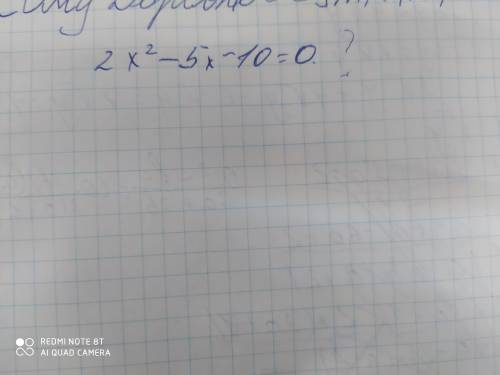 2x² - 5x - 10 = 0. ?
REDMI NOTE 8T
AI QUAD CAMERA